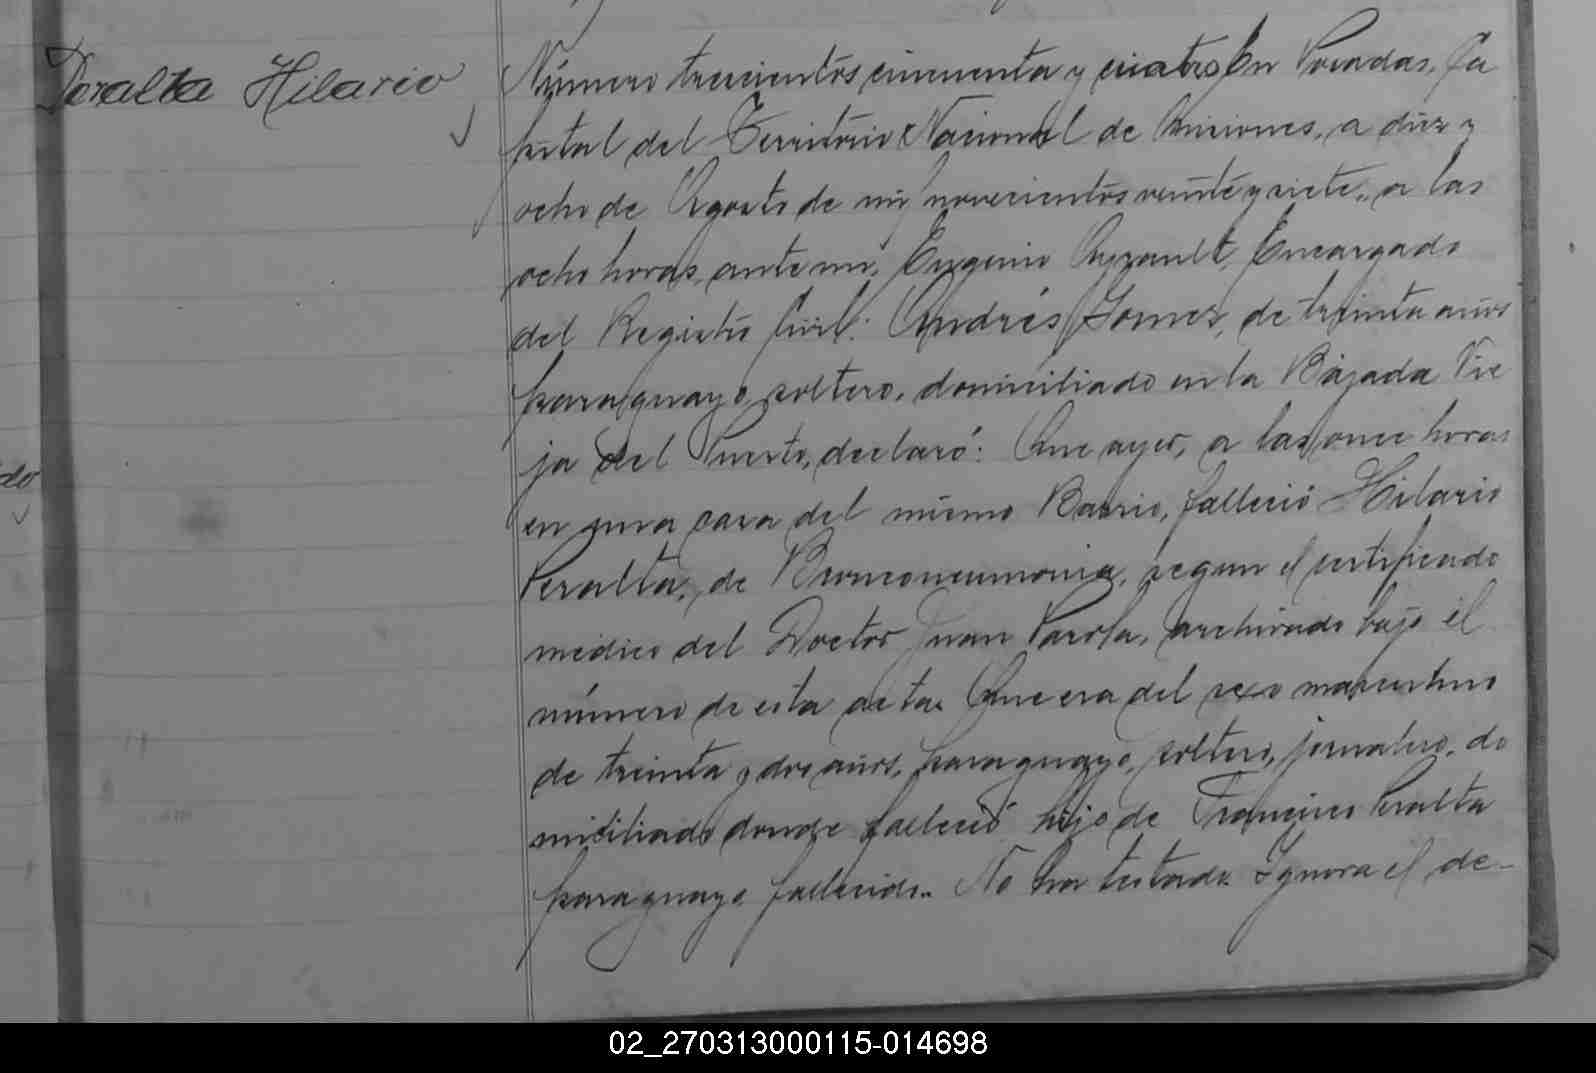 Peralta Hilario
Número trescientos cincuenta y cuatro En Posadas, Ca
pital del Territorio Nacional de Misiones, a diez y
ocho de Agosto de mil novecientos veinte y siete, a las
ocho horas, ante mi, Eugenio Ayrault, Encargado
del Registro Civil: Andrés Gomez, de treinta años
paraguayo, soltero, domiciliado en la Bajada Vie
ja del Puerto, declaró: Que ayer, a las once horas
en una casa del mismo Barrio, falleció Hilario
Peralta, de Bronconeumonia, segun el certificado
médico del Doctor Juan Parola, archivado bajo el
número de esta acta. Que era del sexo masculino
de treinta y dos años, paraguayo, soltero, jornalero, do
miciliado donde falleció hijo de Francisco Peralta
paraguayo, fallecido. No ha testado. Ignora el de-
do
02_270313000115-014698